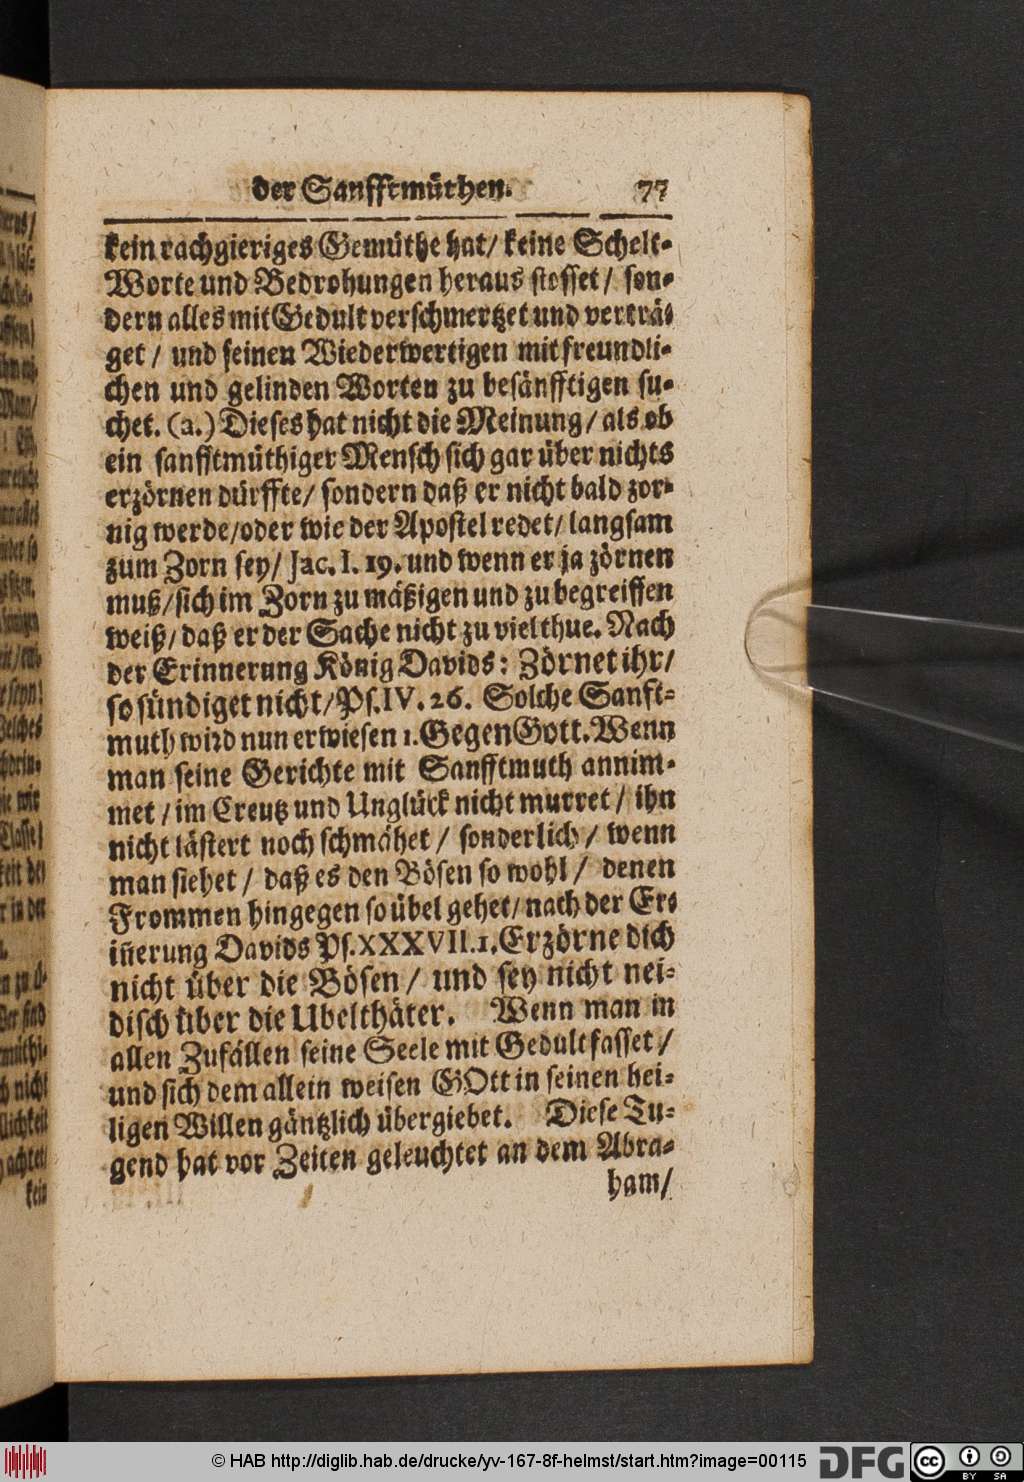 der Sanfftmüthen. 77
kein rachgieriges Gemüthe hat/ keine Schelt-
Worte und Bedrohungen heraus stosset/ son-
dern alles mit Gedult verschmertzet und verträ-
get / und seinen Wiederwertigen mit freundli-
chen und gelinden Worten zu besänfftigen su-
chet. (2.) Dieses hat nicht die Meinung/ als ob
ein sanfftmüthiger Mensch sich gar über nichts
erzörnen dürffte/ sondern daß er nicht bald zor-
nig werde/oder wie der Apostel redet/ langsam
zum Zorn sey/ Jac. I. 19. und wenn er ja zörnen
muß/sich im Zorn zu mäßigen und zu begreiffen
weiß/ daß er der Sache nicht zu viel thue. Nach
der Erinnerung König Davids: Zörnet ihr/
so sündiget nicht/Ps. IV. 26. Solche Sanft-
muth wird nun erwiesen 1. Gegen Gott. Wenn
man seine Gerichte mit Sanfftmuth annim-
met / im Creutz und Unglück nicht murret / ihn
nicht lästert noch schmähet / sonderlich / wenn
man siehet / daß es den Bösen so wohl / denen
Frommen hingegen so übel gehet/ nach der Er-
iñerung Davids Ps. XXXVII. 1. Erzörne dich
nicht über die Bösen / und sey nicht nei-
disch über die Ubelthäter. Wenn man in
allen Zufällen seine Seele mit Gedult fasset /
und sich dem allein weisen GOtt in seinen hei-
ligen Willen gäntzlich übergiebet. Diese Tu-
gend hat vor Zeiten geleuchtet an dem Abra-
ham/
kein
© HAB http://diglib.hab.de/drucke/yv-167-8f-helmst/start.htm?image=00115
DFG
cc
BY SA